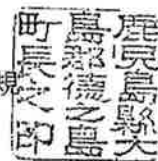 鹿兒島縣大
島郡徳之島
町長之印